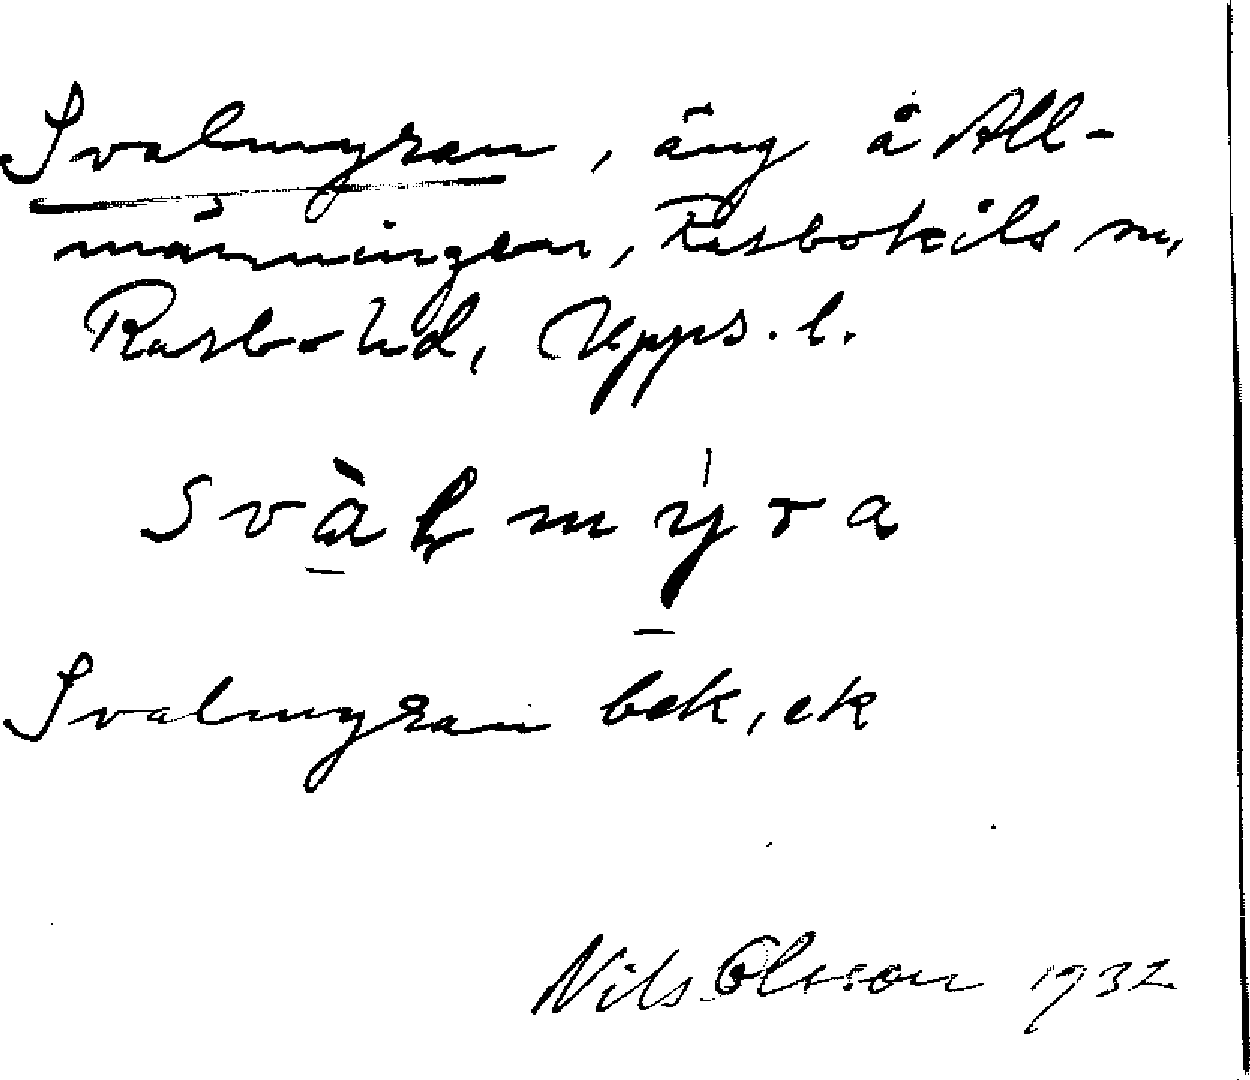 Svalmyran, äng å All-
männingen, Rasbokils sn,
Rasbo hd, Upps. l.
svà̠ḷmý̠ra
Svalmyran bek, ek
Nils Olsson 1932